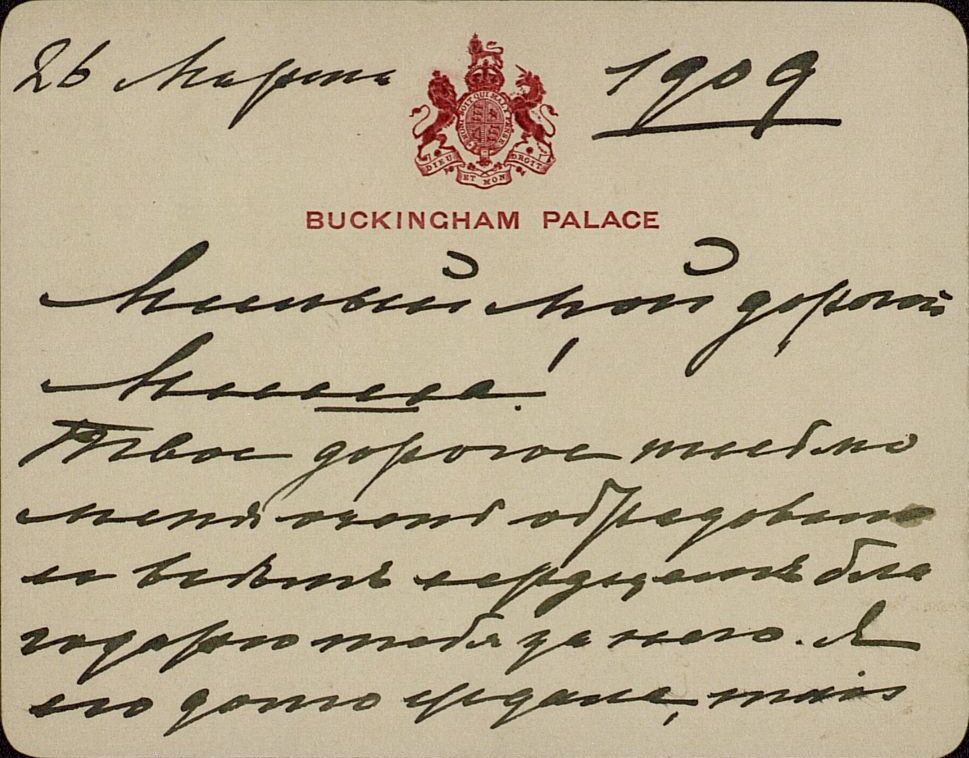 26 Марта 1909
DIEU ET MON DROIT
BUCKINGHAM PALACE
Милый мой дорогой
Миша!
Твое дорогое письмо
меня очень обрадовало
и всѣмъ сердцемъ бла
годарю тебя за него. Я
его долго ждала,